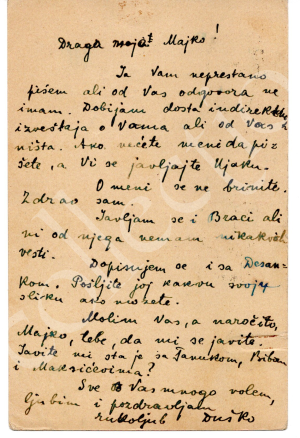 Draga moja Majko!
Ja Vam neprestano
pišem ali od Vas odgovora ne
imam. Dobijam dosta indirektnih
izveštaja o Vama ali od Vas
ništa. Ako nećete meni da pi-
šete, a Vi se javljajte Ujaku.
O meni se ne brinite.
Zdrav sam.
Javljam se i Braci ali
ni od njega nemam nikakvih
vesti.
Dopisujem se i sa Desan-
kom. Pošljite joj kakvu svoju
sliku ako možete.
Molim Vas, a naročito,
Majko, tebe, da mi se javite.
Javite mi šta je sa Bibom
i Maksićevima?
Sve Vas mnogo volem,
ljubim i pozdravljam
rukoljub Duško